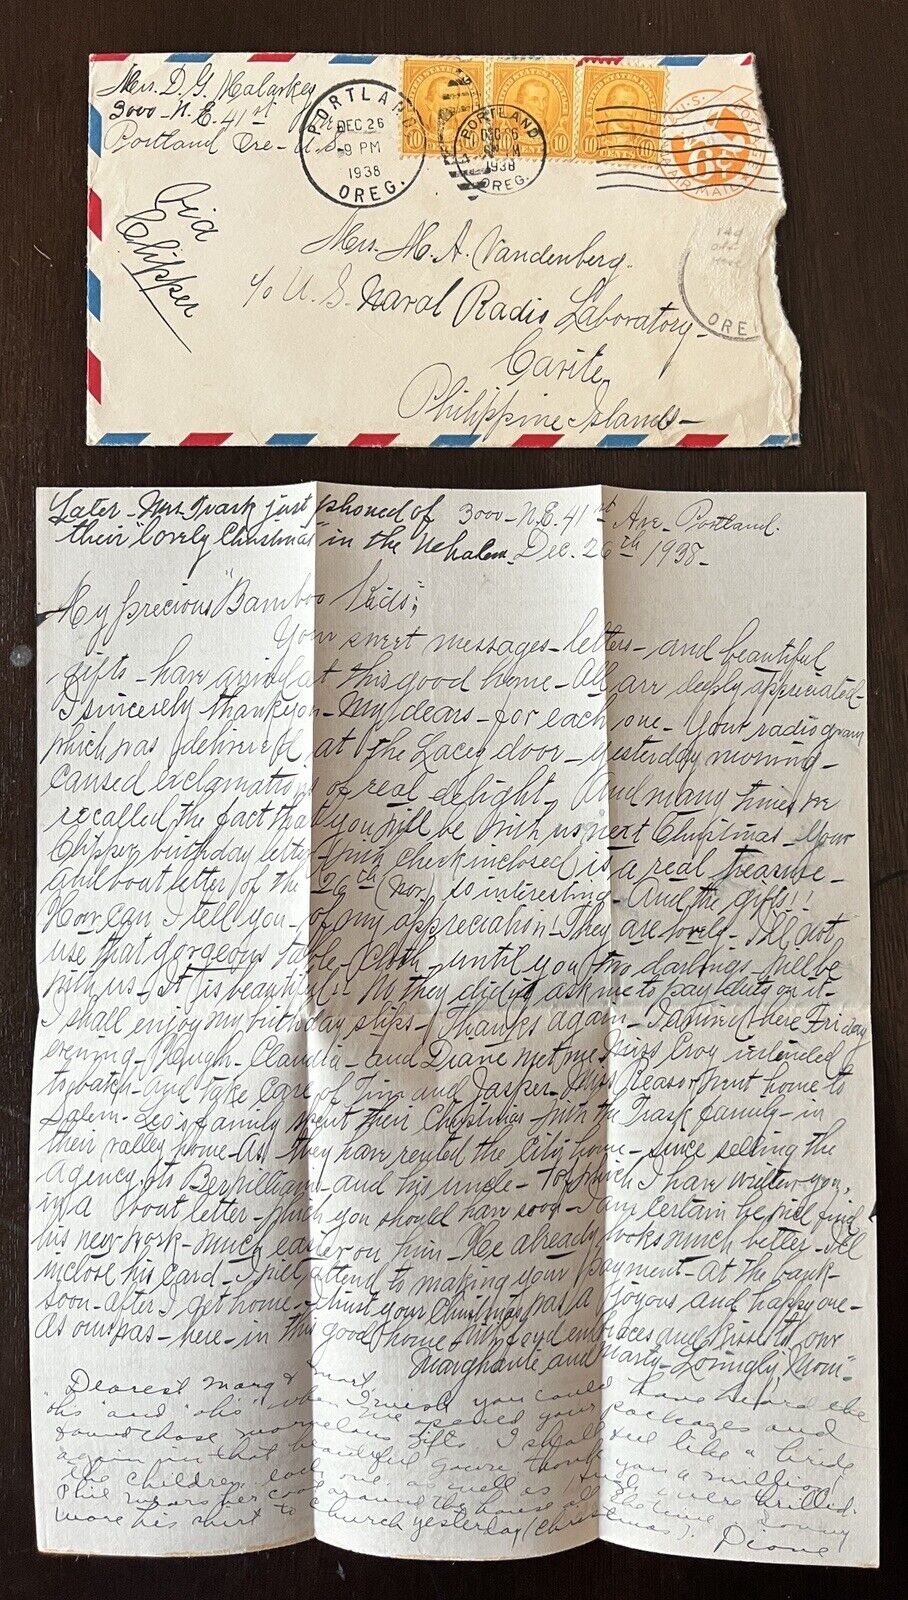 Mrs. D. G. Malarkey
3000 - N.E. 41st
Portland Ore - U.S.
PORTLAND
DEC 26
9 PM
1938
OREG.
UNITED STATES POSTAGE
10 10 10 CENTS 10
PORTLAND
DEC 26
1938
OREG.
U.S. POSTAGE
6c
AIR MAIL
via
Clipper
Mrs. M. A. Vandenberg.
c/o U. S. Naval Radio Laboratory -
Cavite.
Philippine Islands -
ORE
Later - Mrs. Trask just phoned of
their "lovely Christmas" in the Nehalem.
3000 - N.E. 41st Ave - Portland.
Dec. 26th 1938 -
My precious "Bamboo Kids";
Your sweet messages - letters - and beautiful
gifts - have arrived at this good home - All are deeply appreciated -
I sincerely thank you - My dears - for each one - Your radiogram
which was delivered at the Lacey door - yesterday morning -
caused exclamations of real delight, And many times we
recalled the fact that you will be with us next Christmas - Your
Clipper birthday letter - (with check inclosed) is a real treasure -
and boat letter of the 26th (Nov.) so interesting - And the gifts!!
How can I tell you - of my appreciation! They are lovely - I'll not
use that gorgeous table-cloth - until you two darlings - will be
with us - It is beautiful!! No, they didn't ask me to pay duty on it -
I shall enjoy my birthday slips - Thanks again - I arrived here Friday
evening - Hough - Claudia - and Diane met me. Miss Croy intended
to watch - and take care of Tim and Jasper - Miss Reasor went home to
Salem - Leo's family spent their Christmas with the Trask family - in
their valley home - As they have rented the City home - since selling the
agency to Ber Williams - and his uncle - Of which I have written you,
in a boat letter - which you should have soon - I am certain he will find
his new work - much easier on him - He already looks much better - I'll
inclose his card - I will attend to making your payment - at the bank -
soon - after I get home - I trust your Christmas was a joyous and happy one -
as ours was - here - in this good home. With fond embraces and kisses to our
Marghante and Marty - Lovingly, "Mom" -
Dearest Marg & Mart
I wish you could have heard the
ohs" and "ohs" when we opened your packages and
found those marvelous gifts. I shall feel like a bride
again in that beautiful gown, thank you a million.
The children each one as well as were thrilled.
Phil wears her coat around the house all the time. Sonny
wore his shirt to church yesterday (Christmas).
Dione